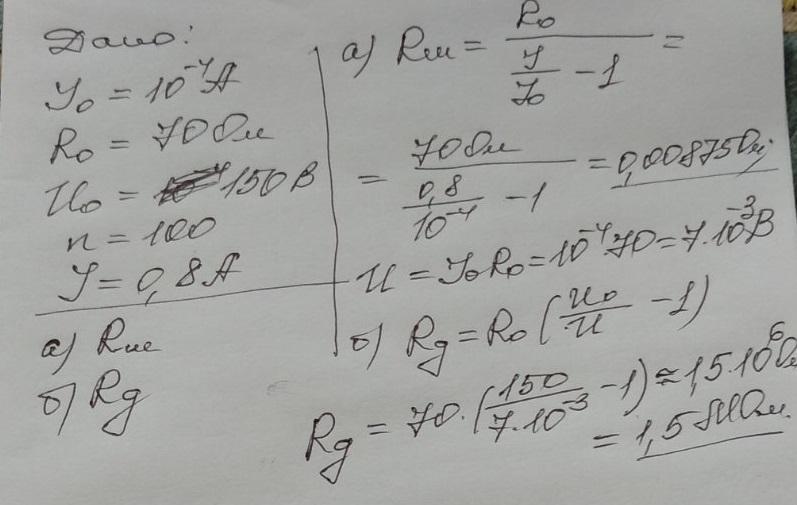 Дано:
I₀ = 10⁻⁴ A
R₀ = 70 Ом
U₀ = 150 В
n = 100
I = 0,8 A
а) Rш
б) Rg
а) Rш = R₀ / (I/I₀ − 1) =
= 70 Ом / (0,8/10⁻⁴ − 1) = 0,00875 Ом;
U = I₀R₀ = 10⁻⁴·70 = 7·10⁻³ В
б) Rg = R₀ (U₀/U − 1)
Rg = 70·(150/7·10⁻³ − 1) ≈ 1,5·10⁶ Ом
= 1,5 МОм.